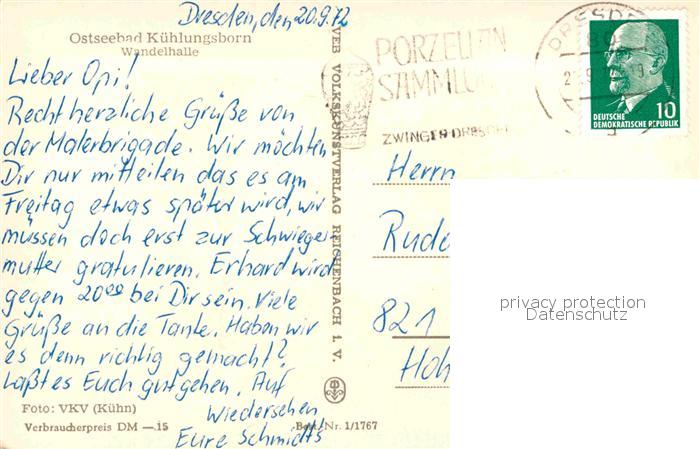 Dresden, den 20.9.72
Ostseebad Kühlungsborn
Wandelhalle
Lieber Opi!
Recht herzliche Grüße von
der Malerbrigade. Wir möchten
Dir nur mitteilen das es am
Freitag etwas später wird, wir
müssen doch erst zur Schwieger
mutter gratulieren. Erhard wird
gegen 20⁰⁰ bei Dir sein. Viele
Grüße an die Tante. Haben wir
es denn richtig gemacht?
Laßt es Euch gut gehen. Auf
Wiedersehen
Eure Schmidt's
Foto: VKV (Kühn)
Verbraucherpreis DM —.15
Best.-Nr. 1/1767
VEB VOLKSKUNSTVERLAG REICHENBACH I. V.
PORZELLAN
SAMMLU
ZWINGER DRESDEN
DRESDE
DEUTSCHE
DEMOKRATISCHE REPUBLIK
10
Herrn
Rudo
821
Hoh
privacy protection
Datenschutz